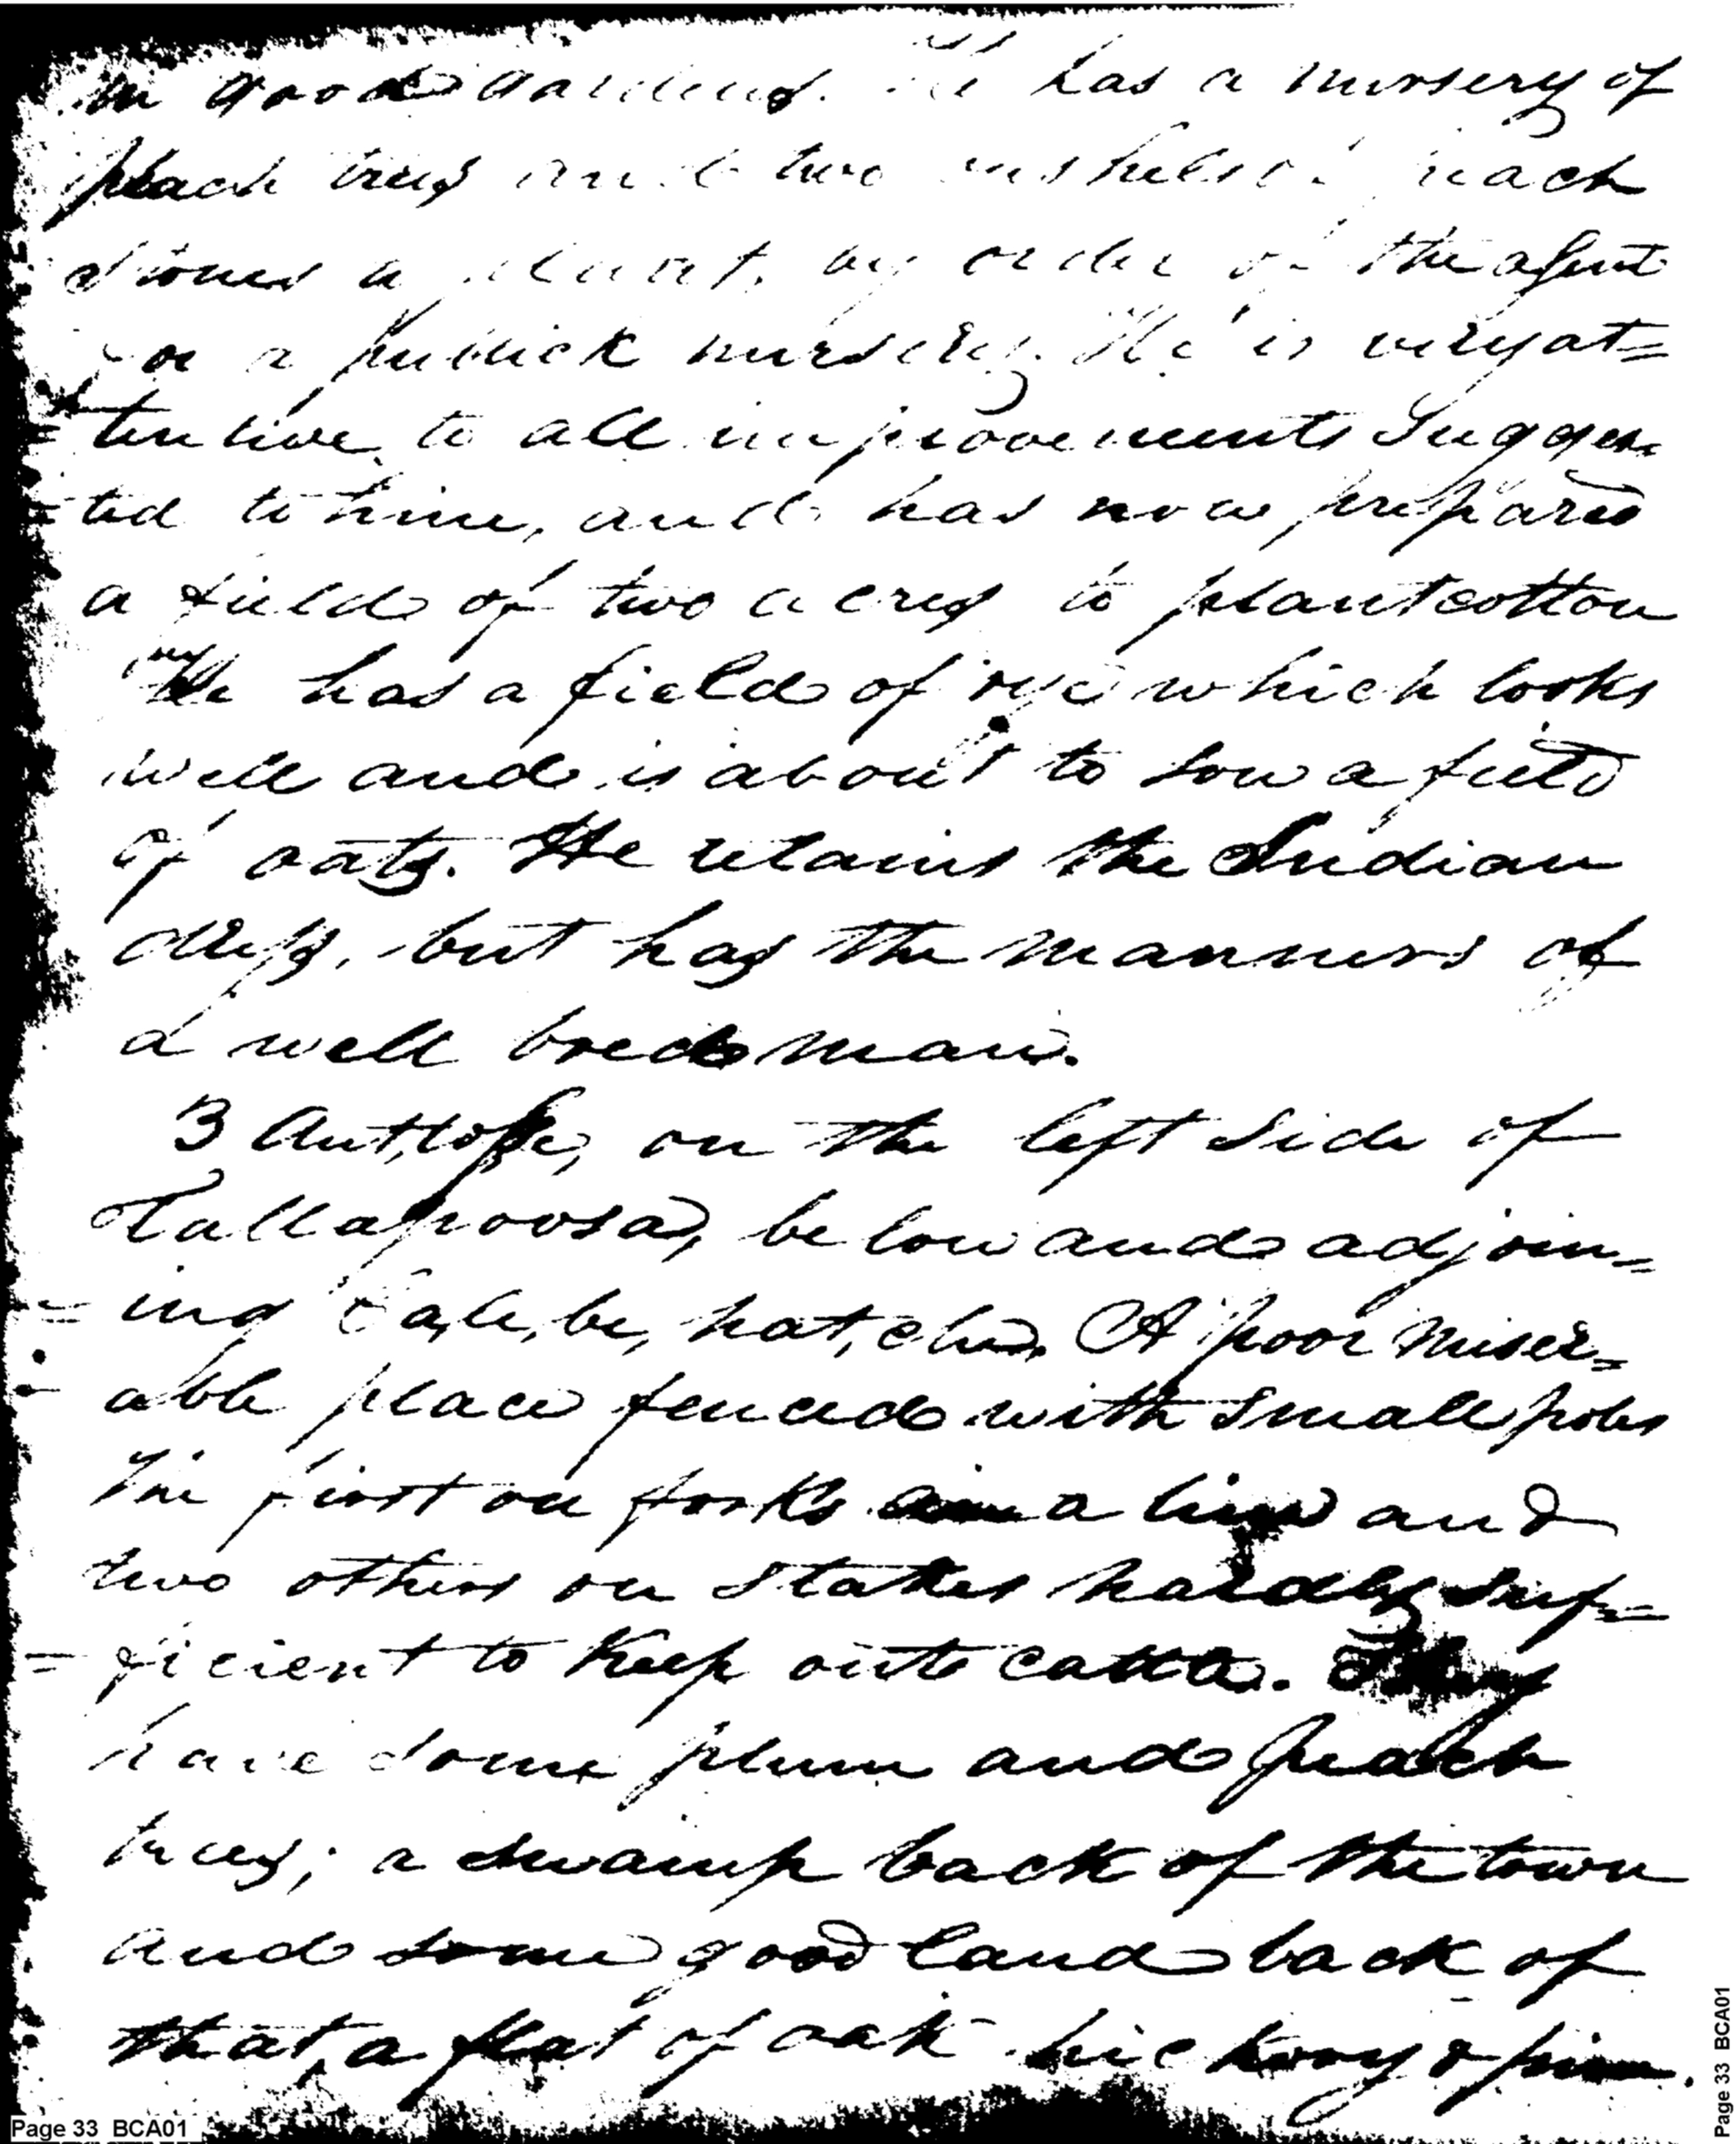 in good gardens. He has a nursery of
peach trees and two bushels of peach
stones to plant, by order of the agent
for a publick nursery. He is very at=
=tentive to all improvements sugges=
=ted to him, and has now prepared
a field of two acres to plant cotton
He has a field of rye which looks
well and is about to sow a field
of oats. He retains the Indian
dress, but has the manners of
a well bred man.
3 Aut,tos,se, on the left side of
Tallapoosa, below and adjoin=
=ing Ca,le,be,hat,che. A poor miser=
able place fenced with small poles
The first on forks in a line and
two others on stakes hardly suf=
=ficient to keep out cattle. They
have some plum and peach
trees; a swamp back of the town
and some good land back of
that, a flat of oak hickory & pine.
Page 33 BCA01
Page 33 BCA01